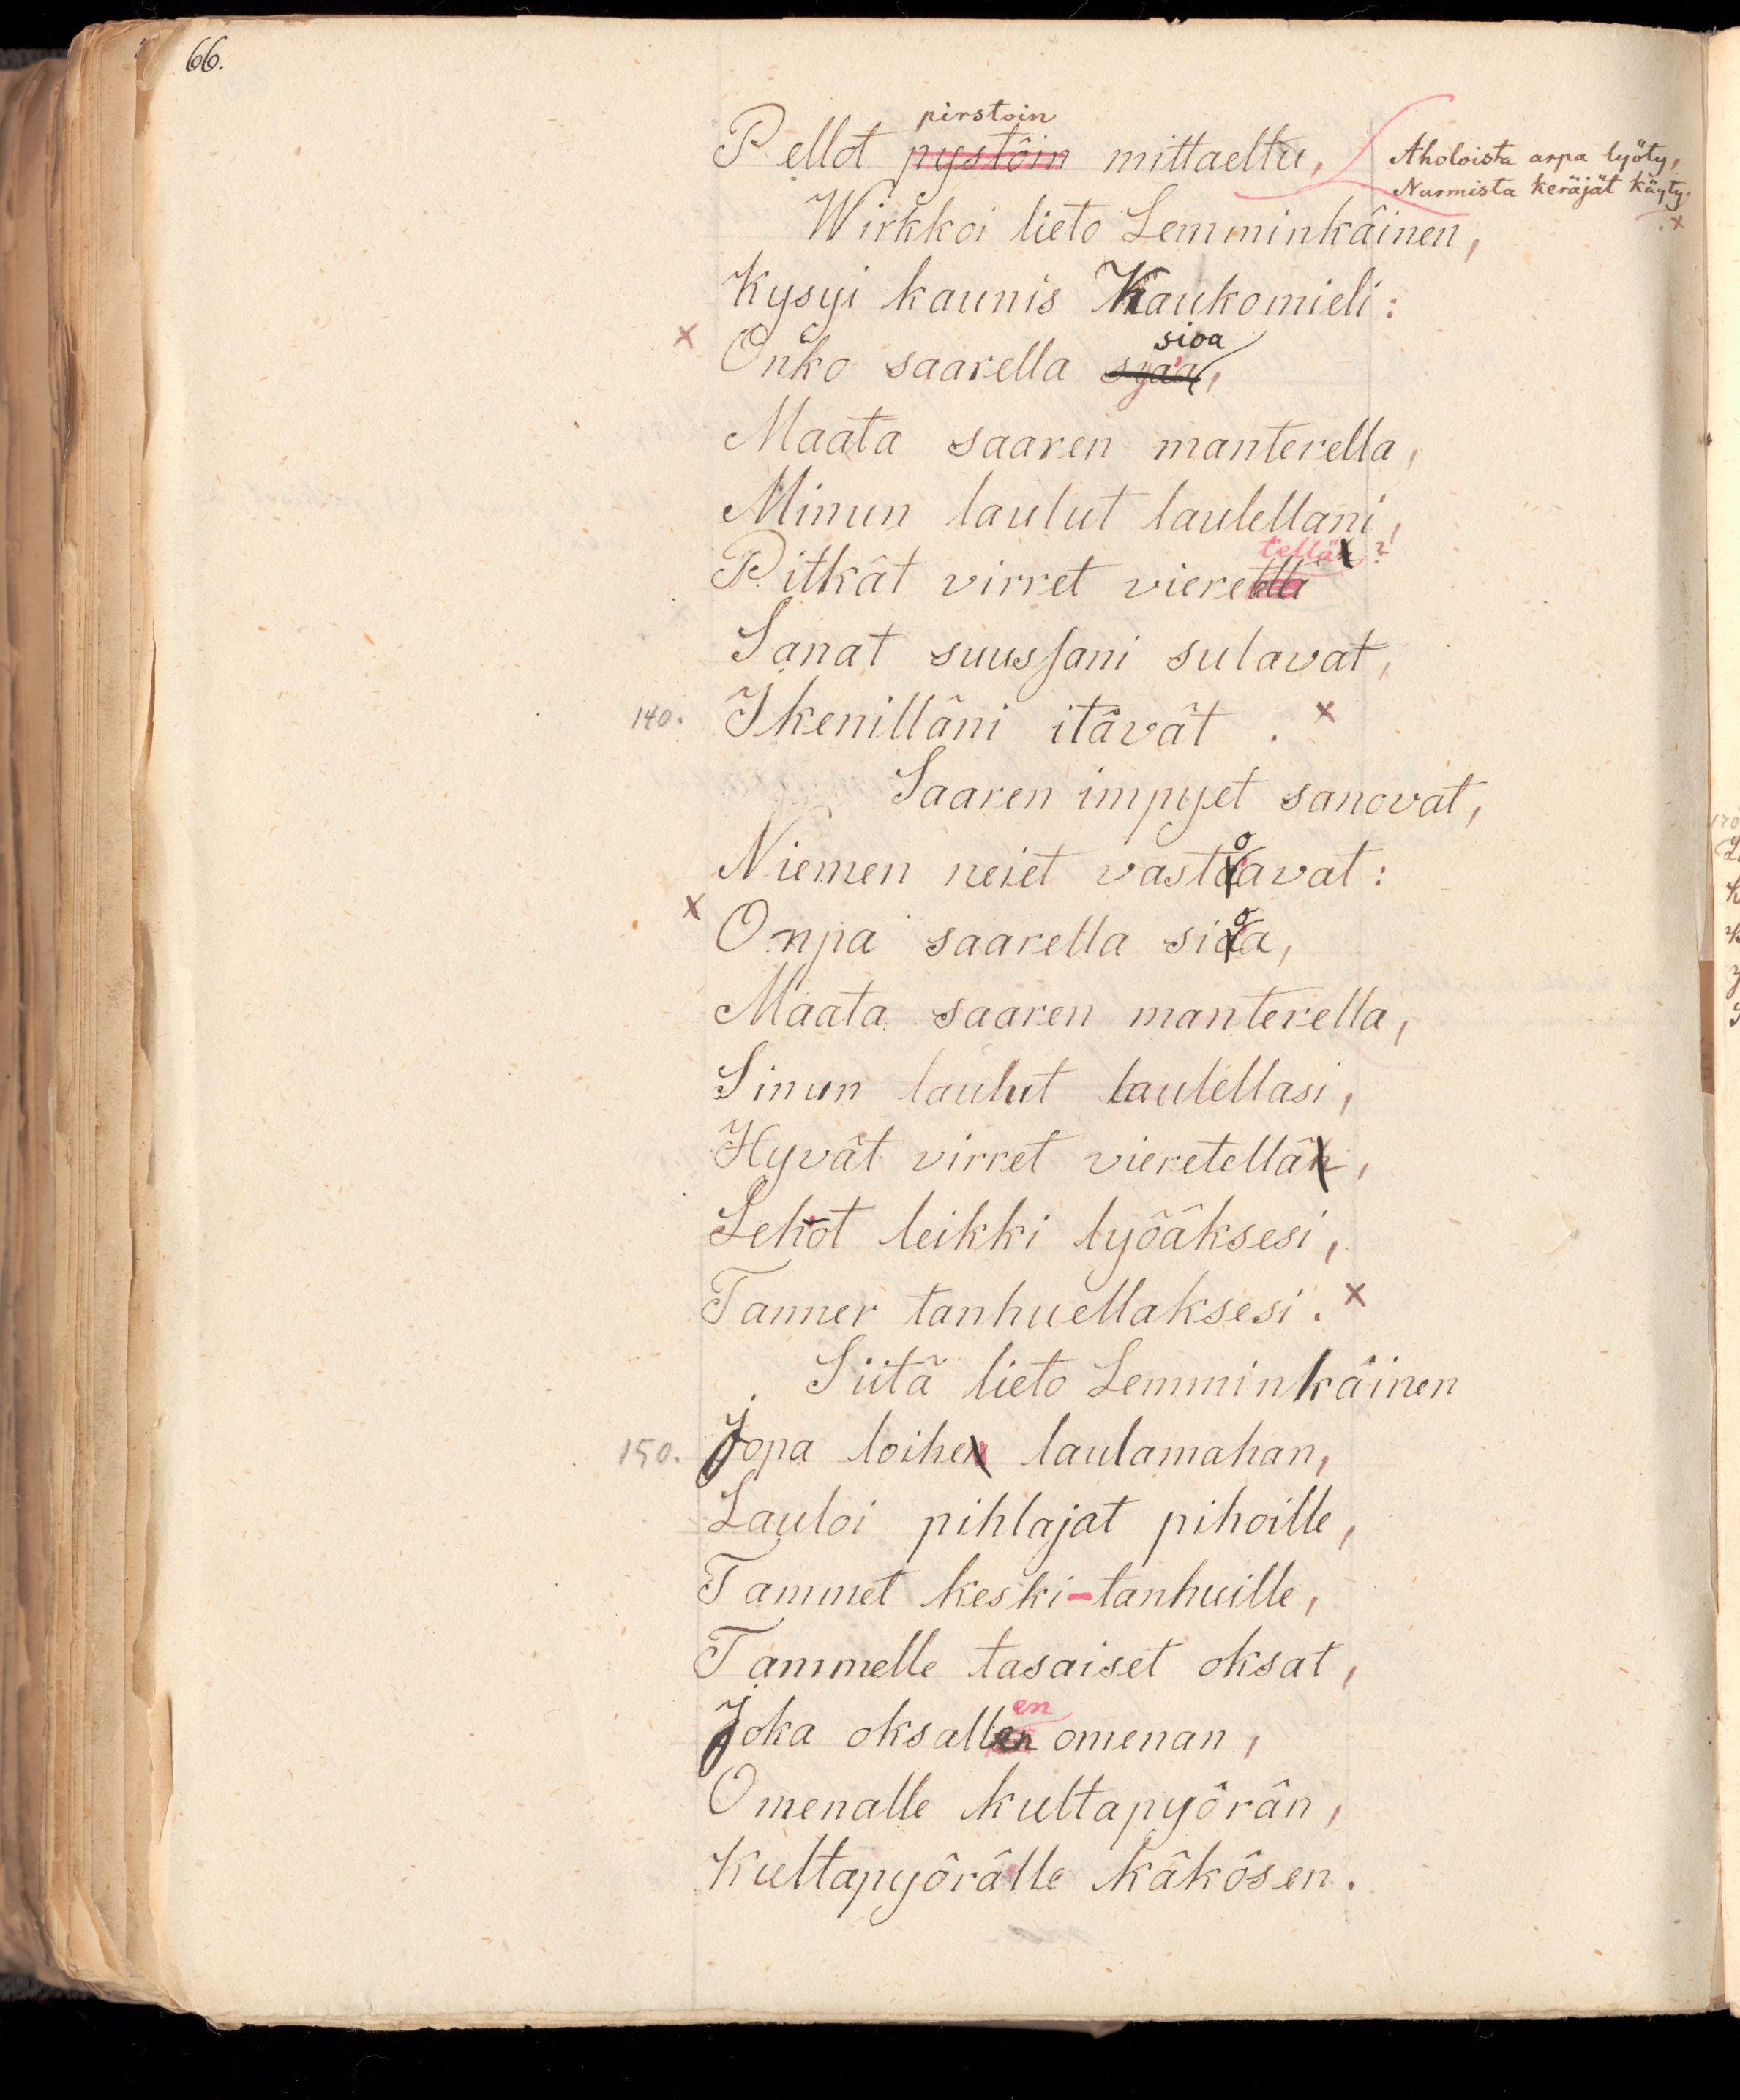 66.
pirstoin
Pellot pystöin mittaeltu,
Aholoista arpa lyöty,
Nurmista keräjät käyty.
x
Wirkkoi lieto Lemminkäinen,
Kysyi kaunis Kaukomieli:
sioa
x Onko saarella syaa,
Maata saaren manterella,
Minun laulut laulellani,
tellä ?!
Pitkät virret vieretella
Sanat suussani sulavat,
140. Ikenilläni itävät . x
Saaren impyet sanovat,
Niemen neiet vastoavat:
x Onpa saarella sioa,
Maata saaren manterella,
Sinun laulut laulellasi,
Hyvät virret vieretellä,
Lehot leikki lyöäksesi,
Tanner tanhuellaksesi. x
Siitä lieto Lemminkäinen
150. Jopa loihe laulamahan,
Lauloi pihlajat pihoille,
Tammet keski-tanhuille,
Tammelle tasaiset oksat,
en
Joka oksallen omenan,
Omenalle kultapyörän,
Kultapyörälle käkösen.